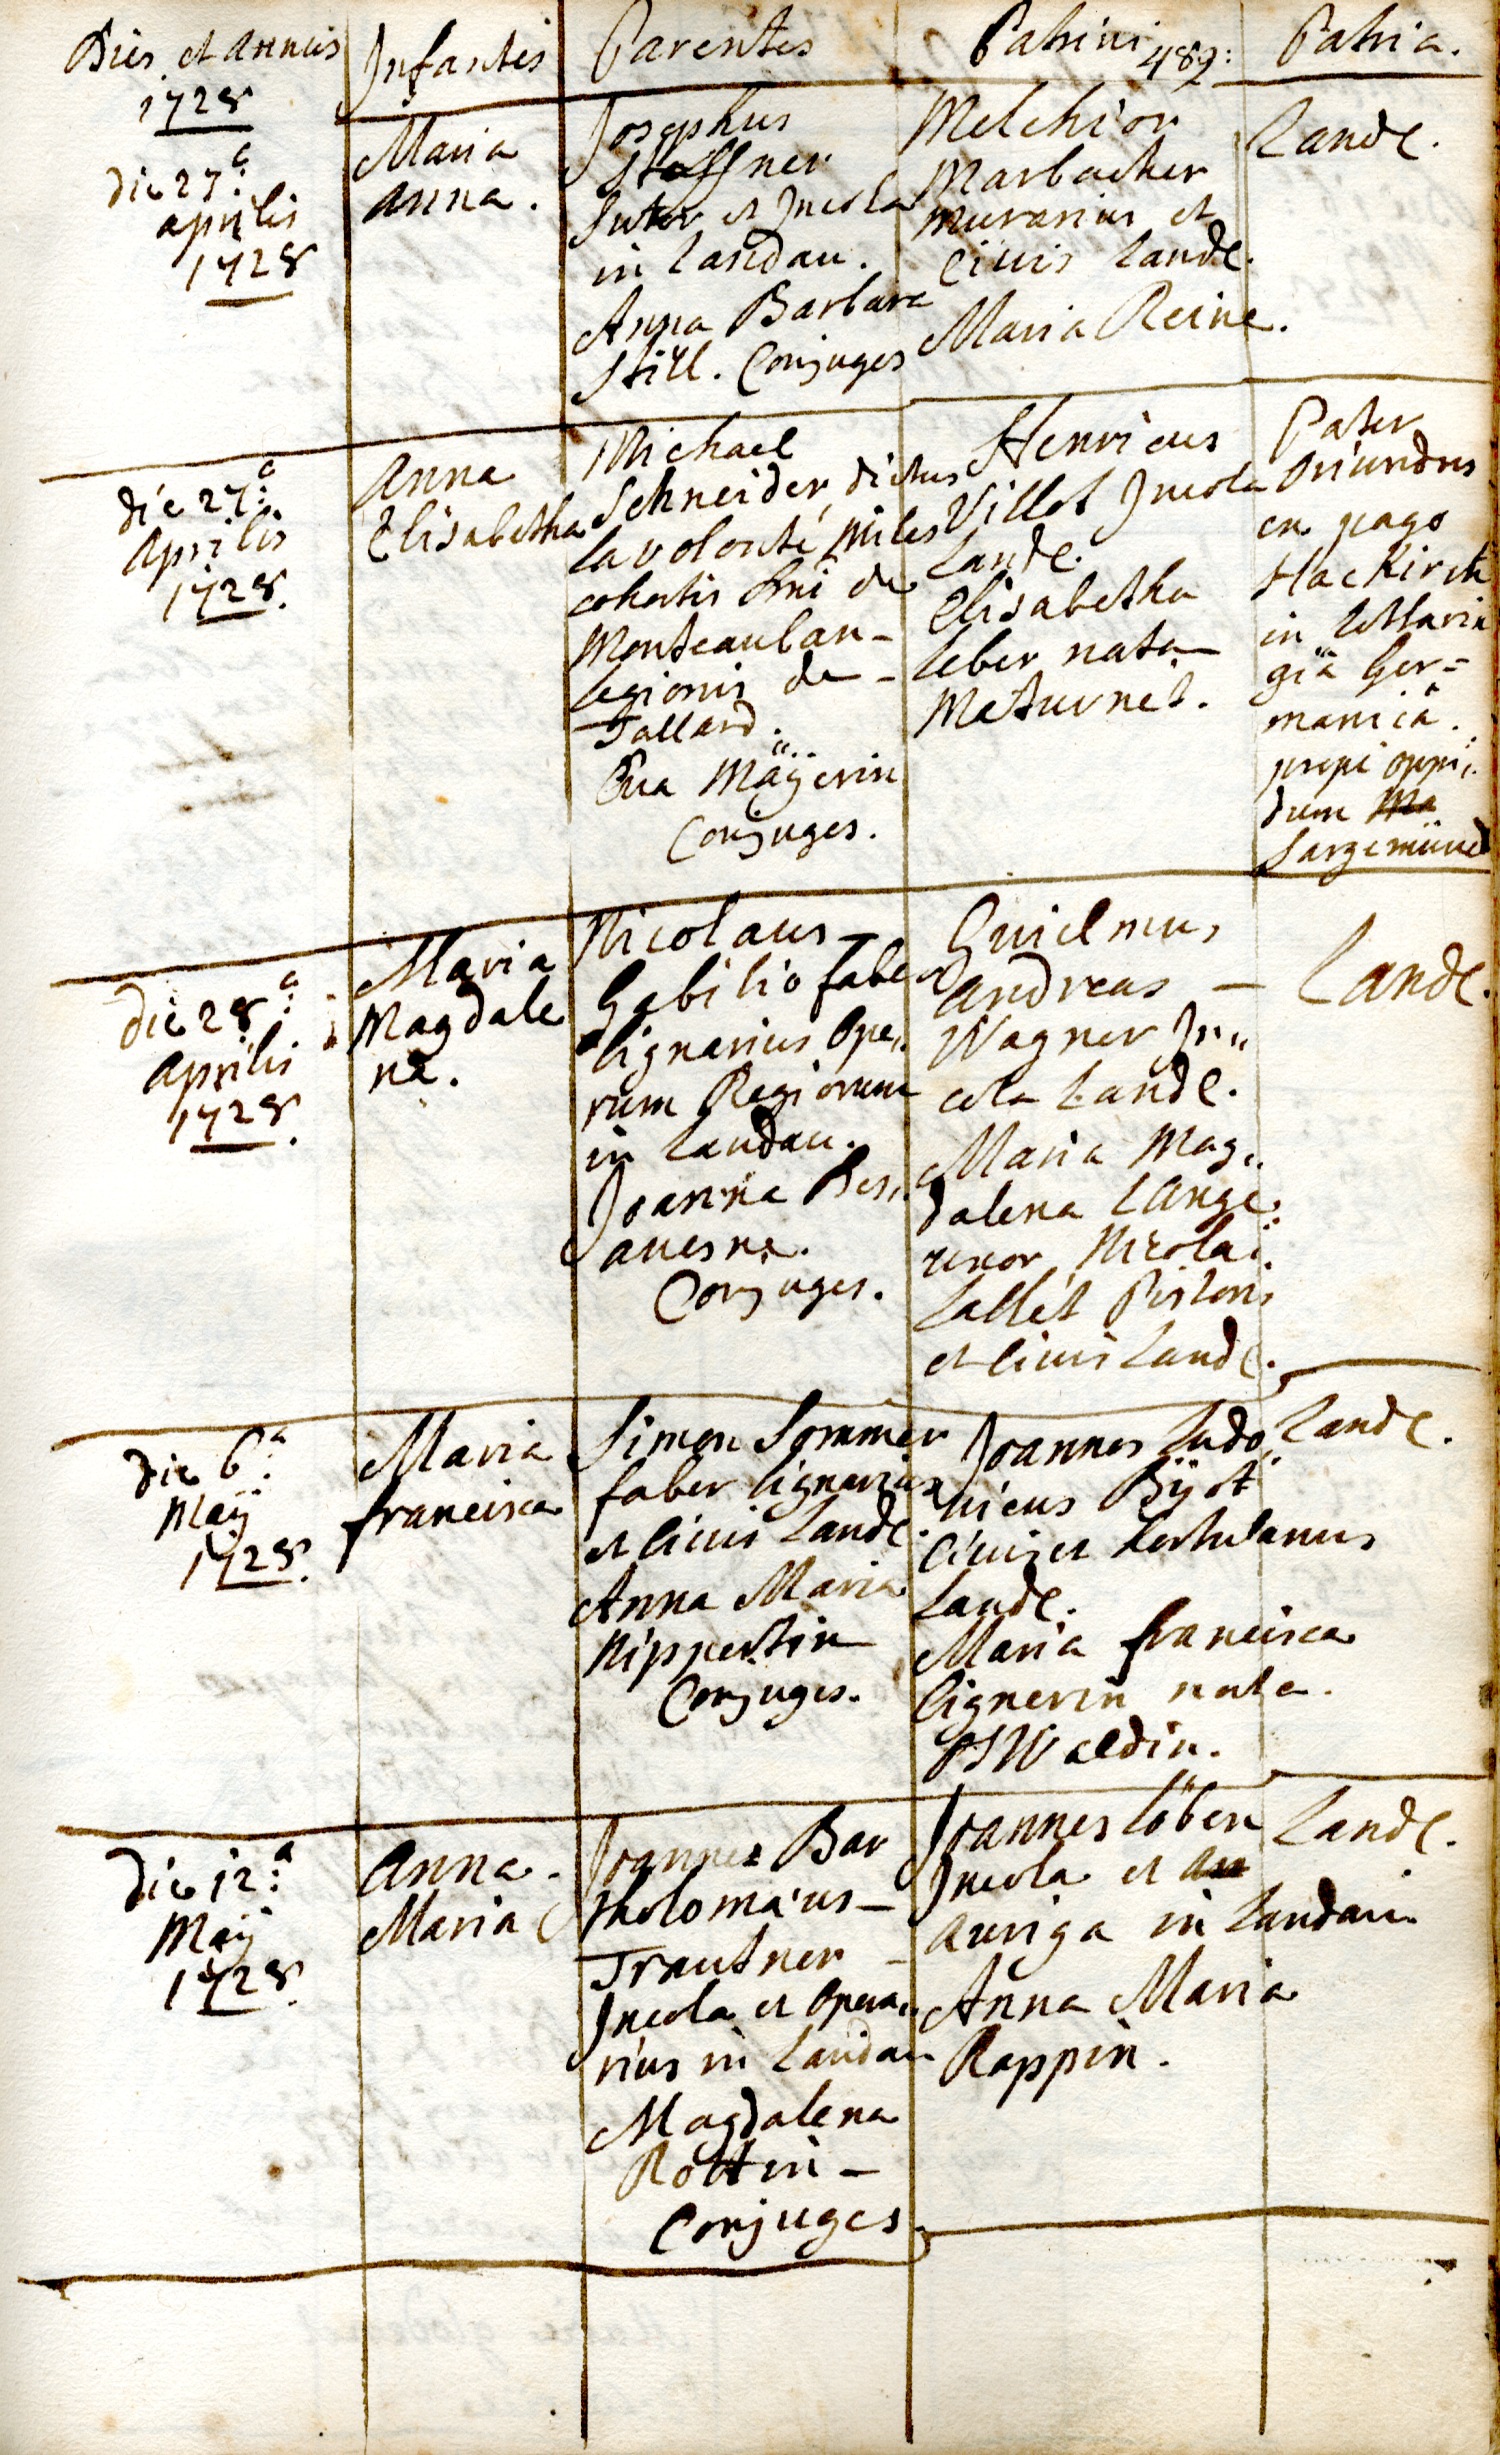 Dies et annus
1728
Infantes
Parentes
Patrini
489:
Patria.
die 27:a
aprilis
1728
Maria
Anna.
Josephus
Steffner
Sutor et Incola
in Landau.
Anna Barbara
Still. Conjuges
Melchior
Marbacher
murarius et
Civis Landc.
Maria Reine.
Landc.
die 27:a
Aprilis
1728.
Anna
Elisabetha
Michael
Schneider, dictus
la volonté, miles
cohortis Dni de
Monteauban-
legionis de-
Tallard.
Eva Mäÿerin
Conjuges.
Henricus
Villot Incola
Landc.
Elisabetha
Leber nata
Maturnet.
Pater
Oriundus
ex pago
Hackirch
in Lotharin
giâ Ger=
manicâ.
propè oppi„
dum Ma
Sargemünd
die 28:a
Aprilis
1728.
Maria
Magdale
na.
Nicolaus-
Gabilio faber
lignarius Ope„
rum Regiorum
in Landau.
Joanna Des„
avesne.
Conjuges.
Guielmus
Andreas -
Wagner In„
cola Landc.
Maria Mag„
dalena Lange:
uxor Nicolai
Lallet Pistoris
et Civis Landc.
Landc.
die 6:a
Maÿ
1728.
Maria
francisca
Simon Sommer
faber lignarius
et Civis Landc.
Anna Maria
Nippertin
Conjuges.
Joannes Ludo„
vicus Bÿot
Civis et hortulanus
Landc.
Maria francisca
Lignerin nata
OSWaldin.
Landc.
die 12:a
Maÿ
1728.
Anna-
Maria
Joannes Bar
tholomæus-
Trautner-
Incola et Opera„
rius in Landau
Magdalena
Rottin-
Conjuges.
Joannes Löben
Incola et au
auriga in Landau
Anna Maria
Rappin.
Landc.